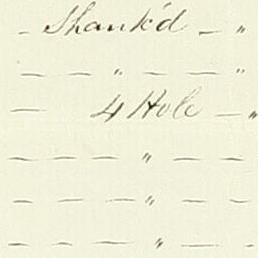 - Shank'd - "
- - " - - "
- 4 Hole - "
- - - " - -
- - - " - -
- - - " - -